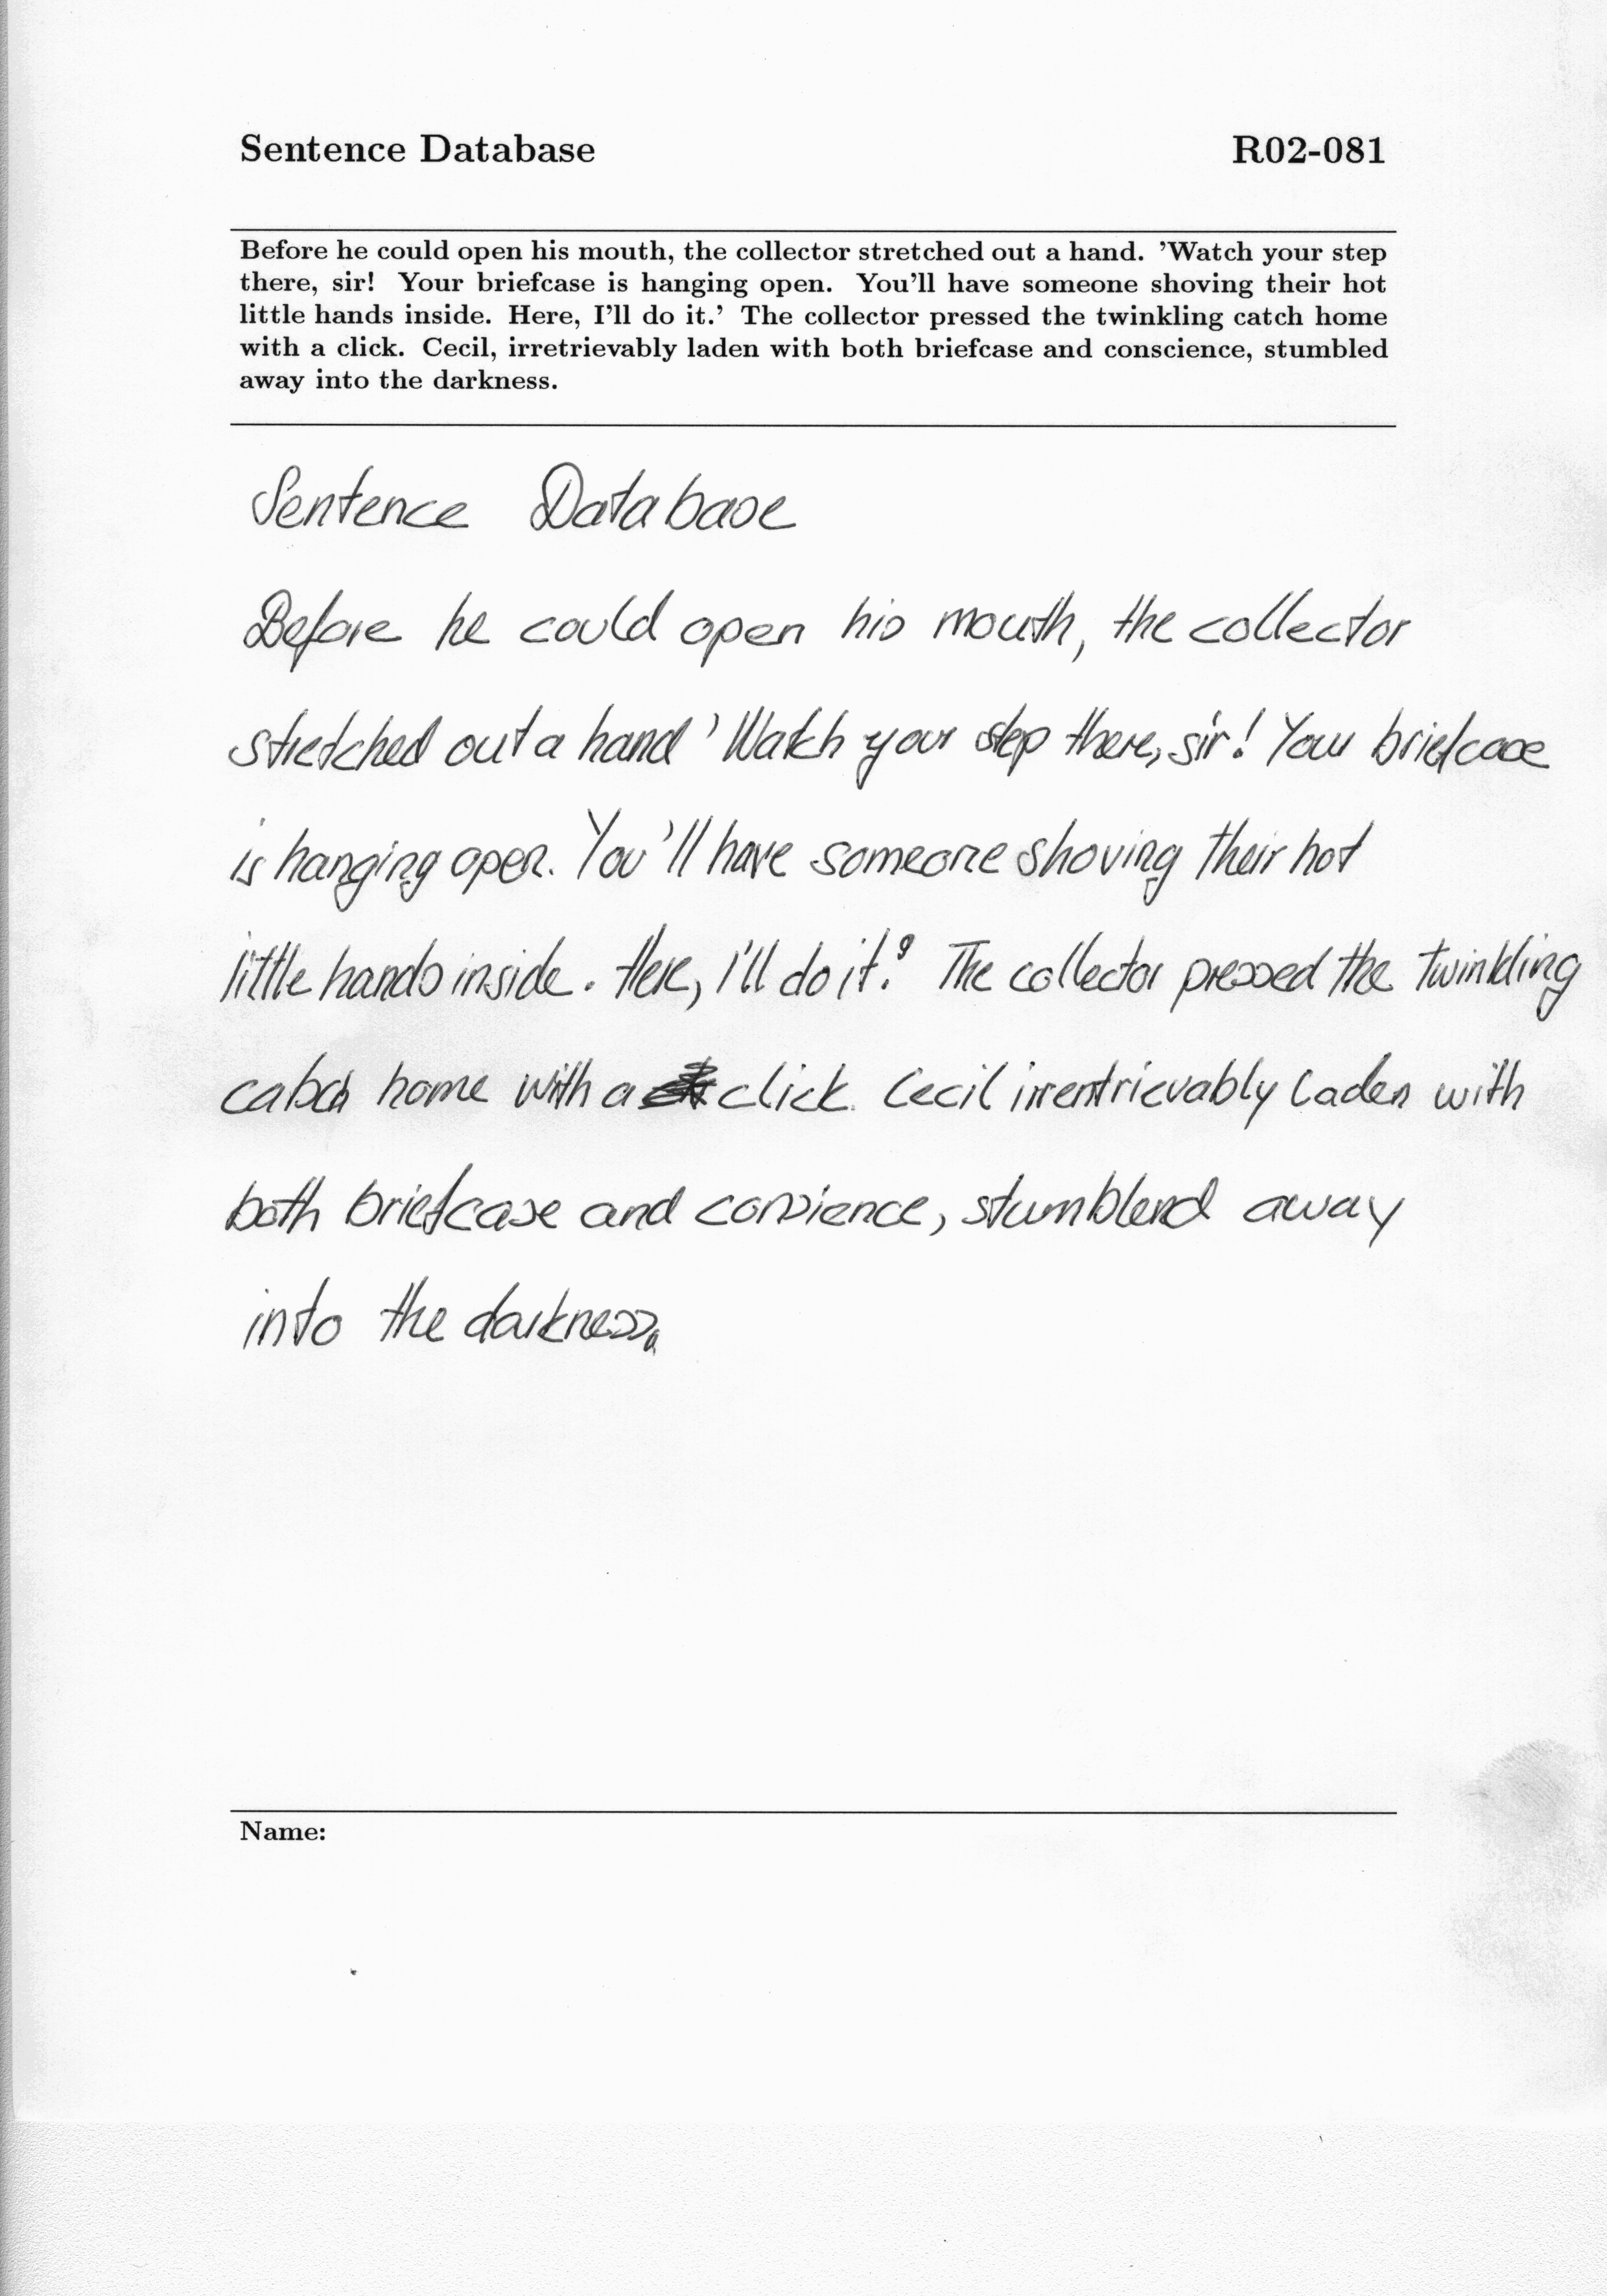 Sentence Database
R02-081
Before he could open his mouth, the collector stretched out a hand. 'Watch your step
there, sir! Your briefcase is hanging open. You'll have someone shoving their hot
little hands inside. Here, I'll do it.' The collector pressed the twinkling catch home
with a click. Cecil, irretrievably laden with both briefcase and conscience, stumbled
away into the darkness.
Sentence Database
Before he could open his mouth, the collector
stretched out a hand ' Watch your step there, sir! Your briefcase
is hanging open. You'll have someone shoving their hot
little hands inside. Here, I'll do it.' The collector pressed the twinkling
home with a click. Cecil irrentrievably laden with
both briefcase and consience, stumblend away
into the darkness.
Name: